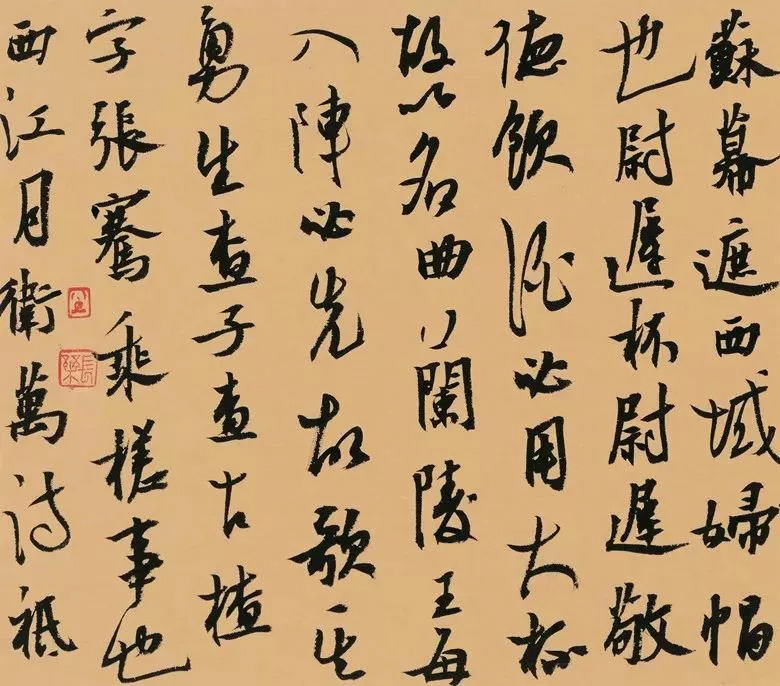 蘇幕遮西域婦帽
也尉遲杯尉遲敬
德飲酒必用大杯
故以名曲蘭陵王每
入陣必先故歌其
勇生查子查古楂
字張騫乘槎事也
西江月衛萬詩祗